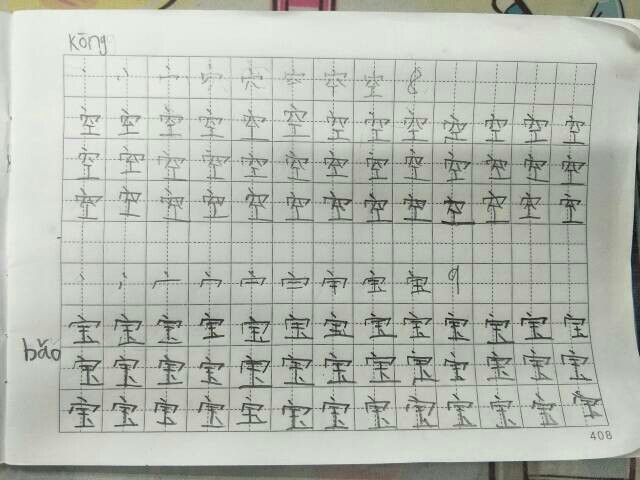 kōng
空 8
空 空 空 空 空 空 空 空 空 空 空 空 空
空 空 空 空 空 空 空 空 空 空 空 空 空
空 空 空 空 空 空 空 空 空 空 空 空 空
宝 宝 9
宝 宝 宝 宝 宝 宝 宝 宝 宝 宝 宝 宝 宝
bǎo 宝 宝 宝 宝 宝 宝 宝 宝 宝 宝 宝 宝 宝
宝 宝 宝 宝 宝 宝 宝 宝 宝 宝 宝 宝 宝
408